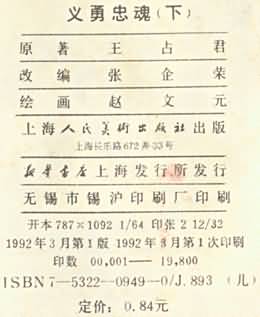 义勇忠魂（下）
原著 王占君
改编 张企荣
绘画 赵文元
上海人民美術出版社出版
上海长乐路672弄33号
新华書店上海发行所发行
无锡市锡沪印刷厂印刷
开本787×1092 1/64 印张2 12/32
1992年3月第1版 1992年3月第1次印刷
印数 00,001—— 19,800
ISBN7—5322—0949—0/J.893（儿）
定价：0.84元